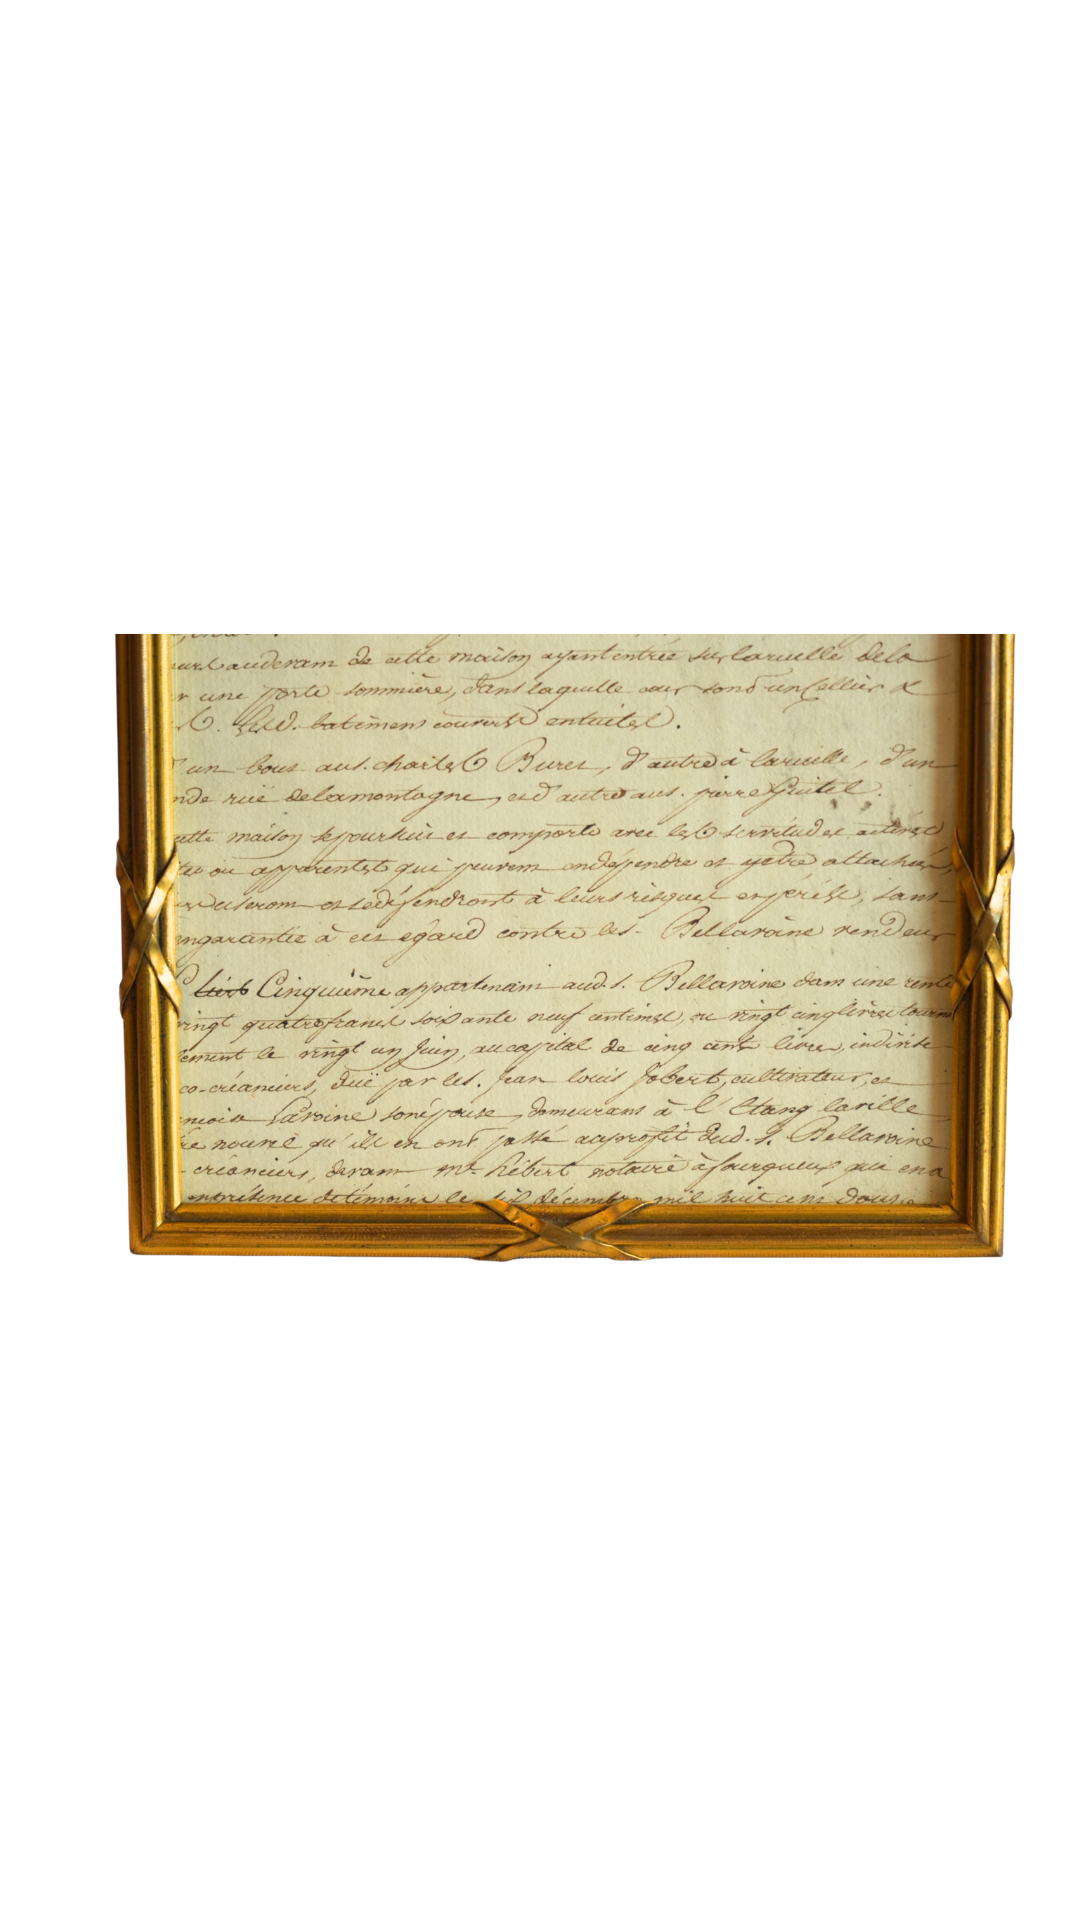 audevant de cette maison ayant entrée sur laruelle dela
une porte sommière, dans laquelle cour sont un cellier &
batimens couverts entuiles.
un bout aus. charles Buret, d'autre à laruelle, d'un
rüe delamontagne, et d'autre aus. pierre Guitel.
maison sepoursuit et comporte avec les servitudes actives
ou apparentes qui peuvent endépendre et yetre attachés,
et sedéfendront à leurs risques et périls, sans
garantie à cet égard contre les. Bellavoine vendeur
Cinquième appartenant aud. s. Bellavoine dans une rente
vingt quatre francs soixante neuf centimes, ou vingt cinq livres tournois
le vingt un Juin, au capital de cinq cents livres, indivise
co-créanciers, düe par les. Jean louis Jobert, cultivateur, et
Lavoine sonépouse, demeurans à l'Etang laville
nouvel qu'ils en ont passé auprofit dud. s. Bellavoine
créanciers, devant me. hébert notaire à fourqueux qui en a
enprésence detémoins le six décembre mil huit cent douze